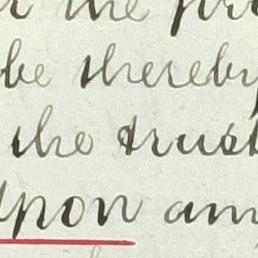 the
be thereby
the trust
upon any